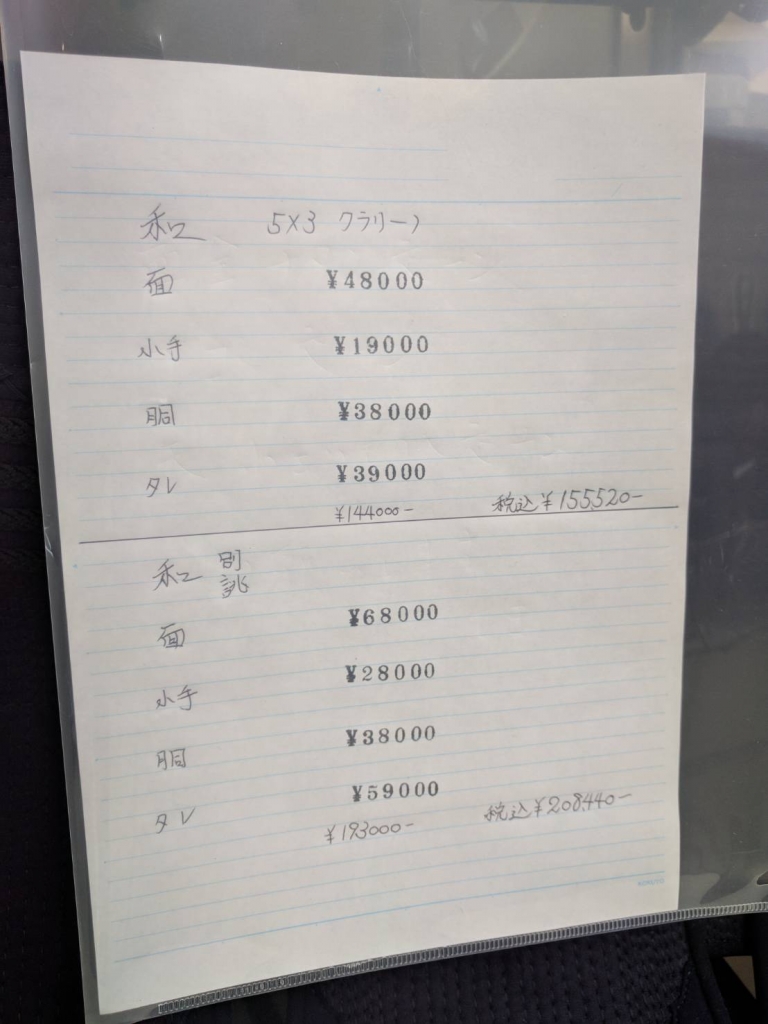 和 5×3 クラリーノ
面 ¥48000
小手 ¥19000
胴 ¥38000
タレ ¥39000
¥144000- 税込¥155,520-
和 別誂
面 ¥68000
小手 ¥28000
胴 ¥38000
タレ ¥59000
¥193000- 税込¥208,440-